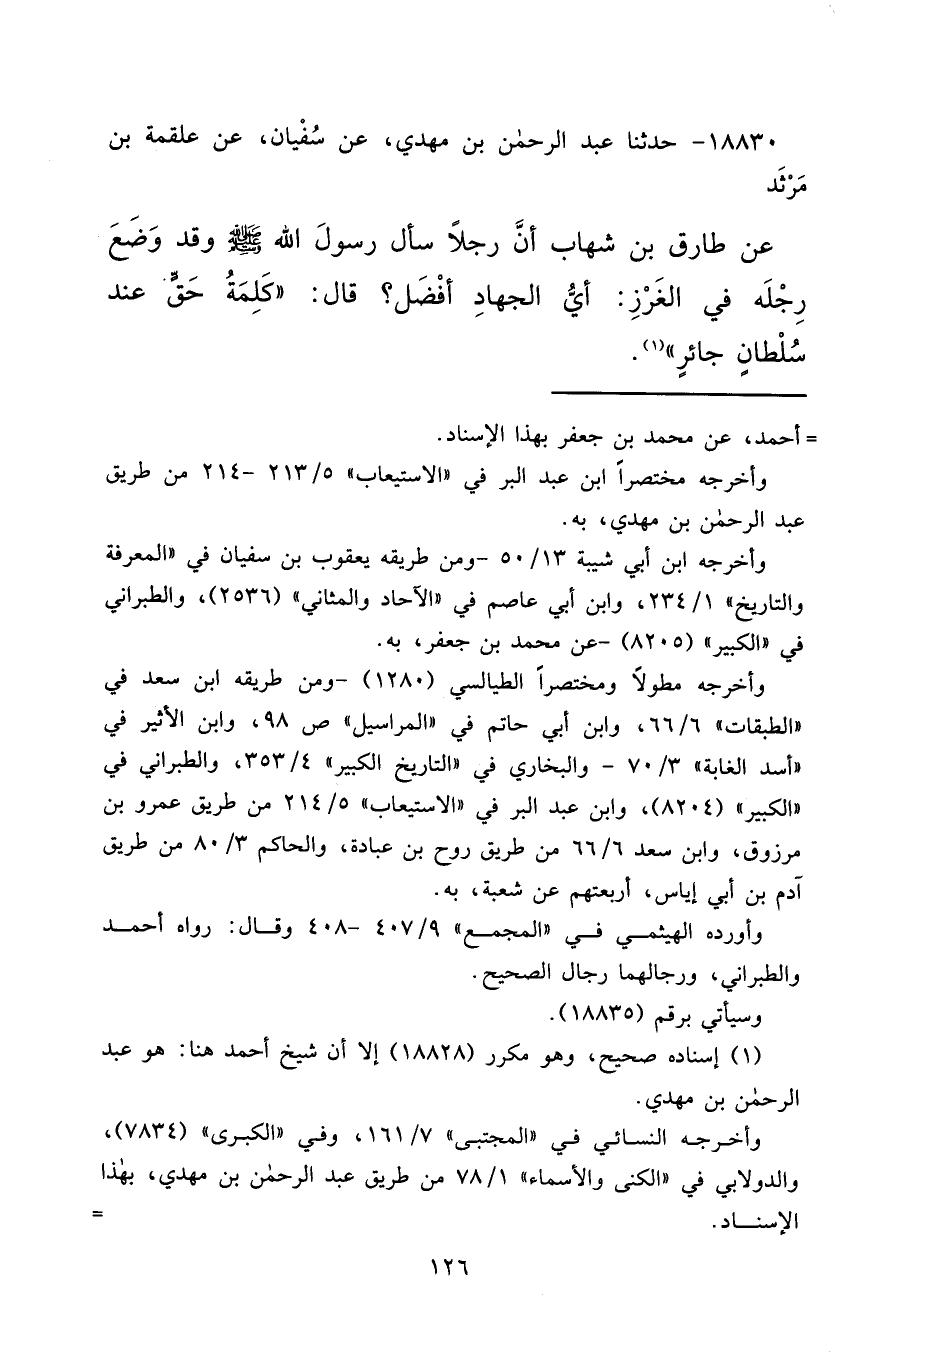 ١٨٨٣٠- حدثنا عبد الرحمٰن بن مهدي، عن سُفْيان، عن علقمة بن
مَرْثَد
عن طارق بن شهاب أنَّ رجلاً سأل رسولَ الله ﷺ وقد وَضَعَ
رِجْلَه في الغَرْزِ: أيُّ الجهادِ أفْضَل؟ قال: «كَلِمَةُ حَقٍّ عند
سُلْطانٍ جائرٍ»(١).
= أحمد، عن محمد بن جعفر بهذا الإسناد.
وأخرجه مختصراً ابن عبد البر في «الاستيعاب» ٢١٣/٥ -٢١٤ من طريق
عبد الرحمٰن بن مهدي، به.
وأخرجه ابن أبي شيبة ٥٠/١٣ -ومن طريقه يعقوب بن سفيان في «المعرفة
والتاريخ» ٢٣٤/١، وابن أبي عاصم في «الآحاد والمثاني» (٢٥٣٦)، والطبراني
في «الكبير» (٨٢٠٥) -عن محمد بن جعفر، به.
وأخرجه مطولاً ومختصراً الطيالسي (١٢٨٠) -ومن طريقه ابن سعد في
«الطبقات» ٦٦/٦، وابن أبي حاتم في «المراسيل» ص ٩٨، وابن الأثير في
«أسد الغابة» ٧٠/٣ - والبخاري في «التاريخ الكبير» ٣٥٣/٤، والطبراني في
«الكبير» (٨٢٠٤)، وابن عبد البر في «الاستيعاب» ٢١٤/٥ من طريق عمرو بن
مرزوق، وابن سعد ٦٦/٦ من طريق روح بن عبادة، والحاكم ٨٠/٣ من طريق
آدم بن أبي إياس، أربعتهم عن شعبة، به.
وأورده الهيثمي في «المجمع» ٤٠٧/٩ -٤٠٨ وقال: رواه أحمد
والطبراني، ورجالهما رجال الصحيح.
وسيأتي برقم (١٨٨٣٥).
(١) إسناده صحيح، وهو مكرر (١٨٨٢٨) إلا أن شيخ أحمد هنا: هو عبد
الرحمٰن بن مهدي.
وأخرجه النسائي في «المجتبى» ١٦١/٧، وفي «الكبرى» (٧٨٣٤)،
والدولابي في «الكنى والأسماء» ٧٨/١ من طريق عبد الرحمٰن بن مهدي، بهٰذا
الإسناد. =
١٢٦